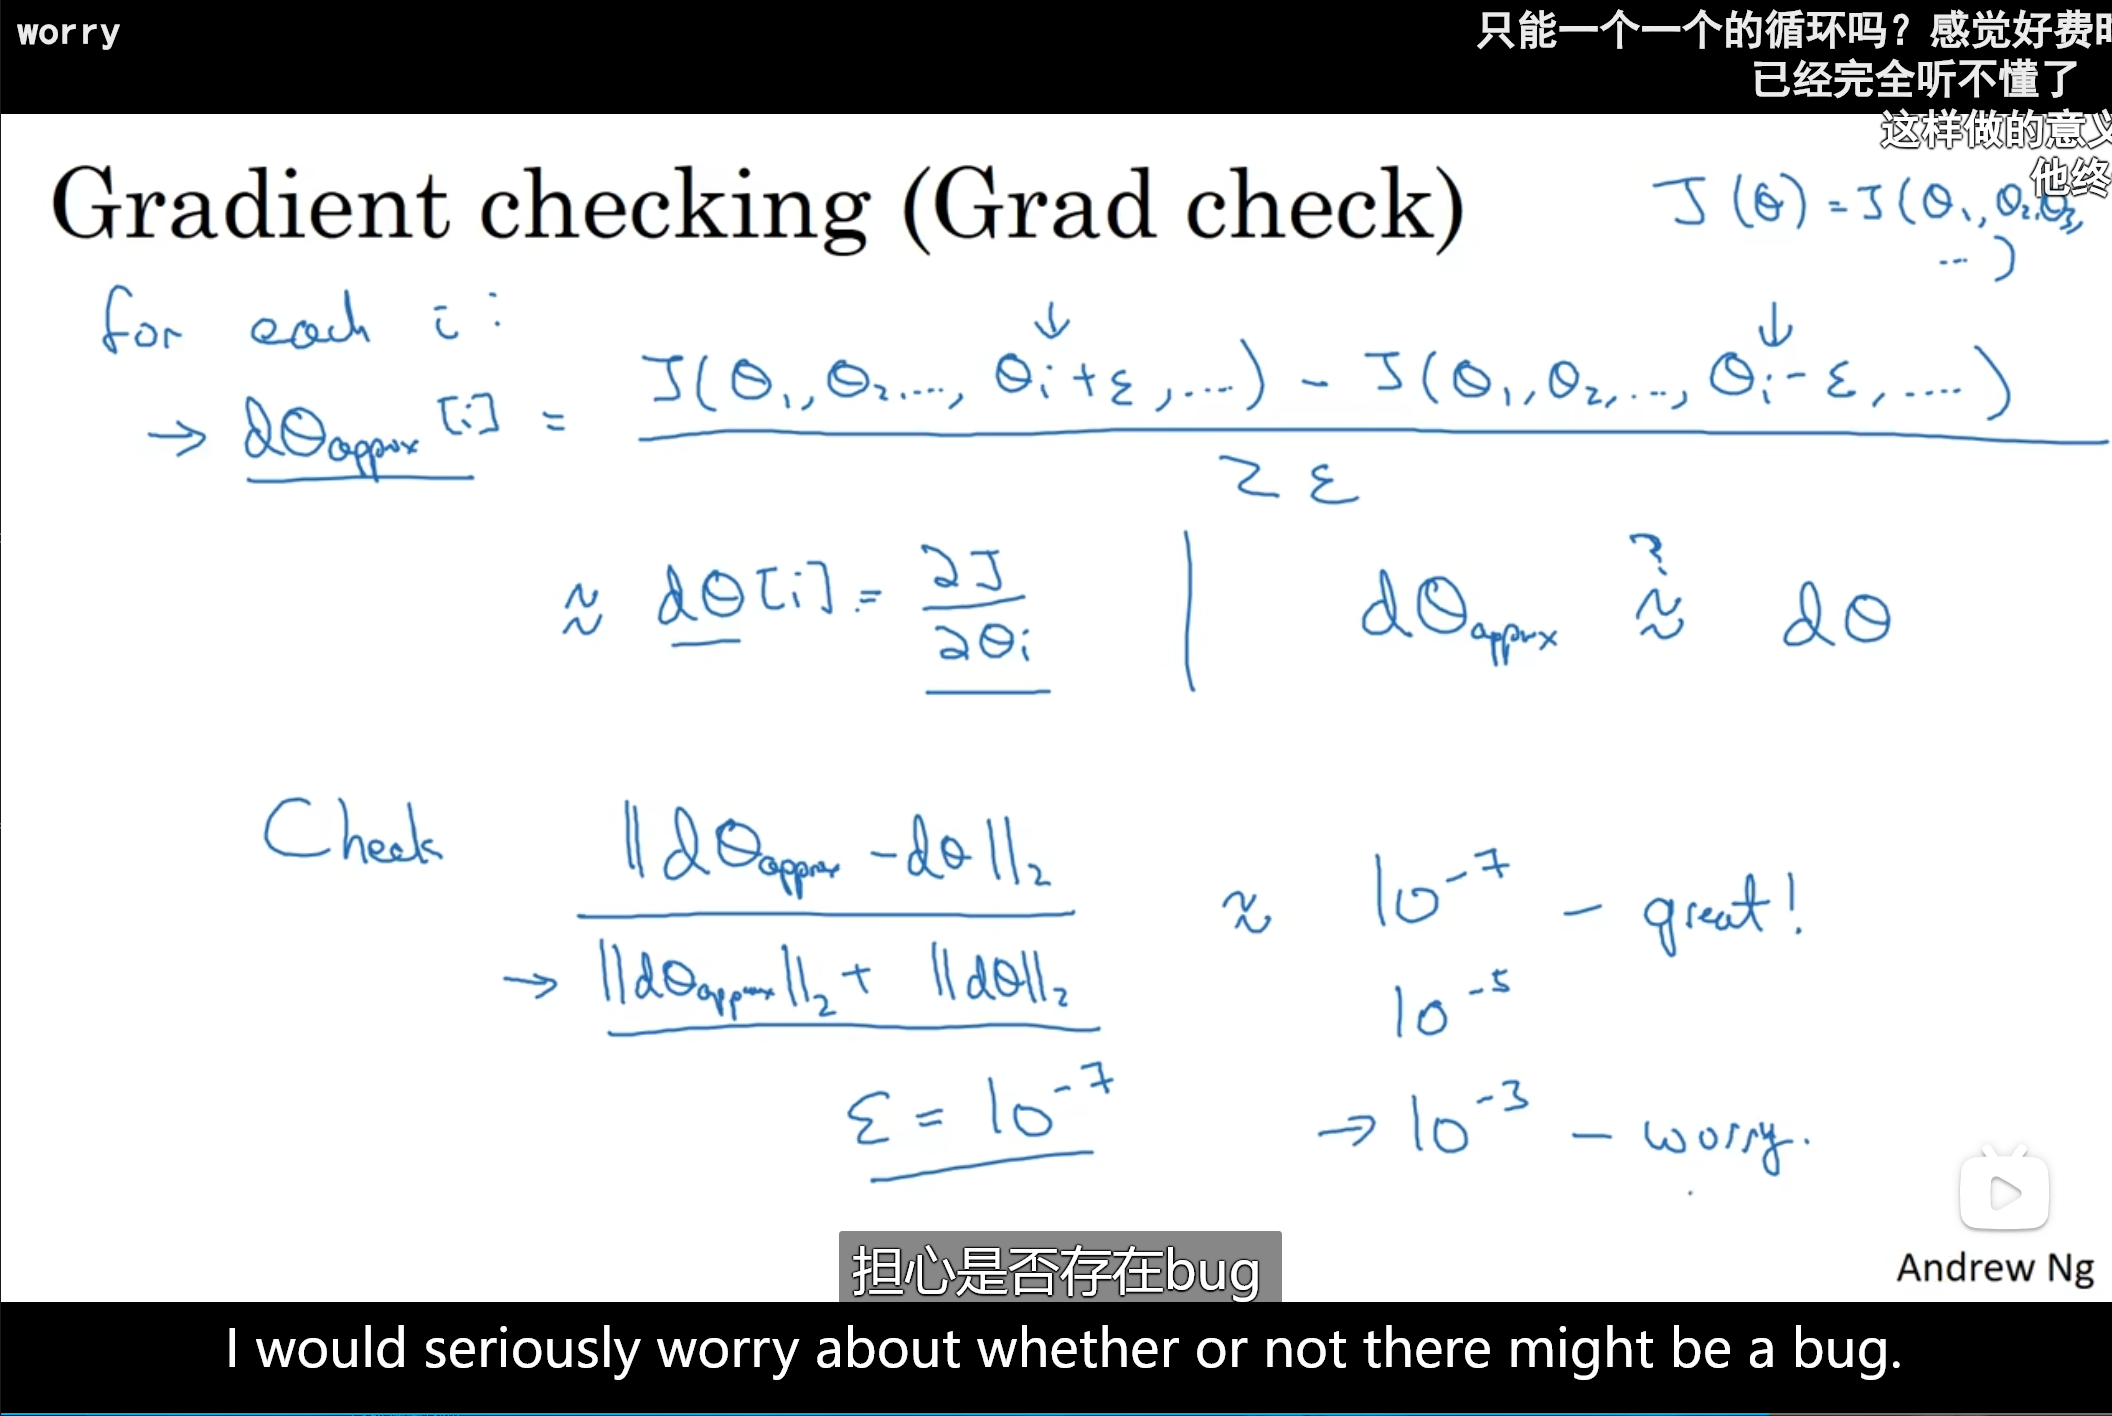 worry
只能一个一个的循环吗？感觉好费
已经完全听不懂了
这样做的意
他终
Gradient checking (Grad check)
J(θ) = J(θ₁, θ₂, θ₃, ...)
for each i:
→ dθapprox[i] = J(θ₁, θ₂, ..., θᵢ+ε, ...) - J(θ₁, θ₂, ..., θᵢ-ε, ...) / 2ε
≈ dθ[i] = ∂J/∂θᵢ | dθapprox ≈? dθ
Check ||dθapprox - dθ||₂ / → ||dθapprox||₂ + ||dθ||₂ ≈ 10⁻⁷ - great!
10⁻⁵
ε = 10⁻⁷ → 10⁻³ - worry.
担心是否存在bug
Andrew Ng
I would seriously worry about whether or not there might be a bug.